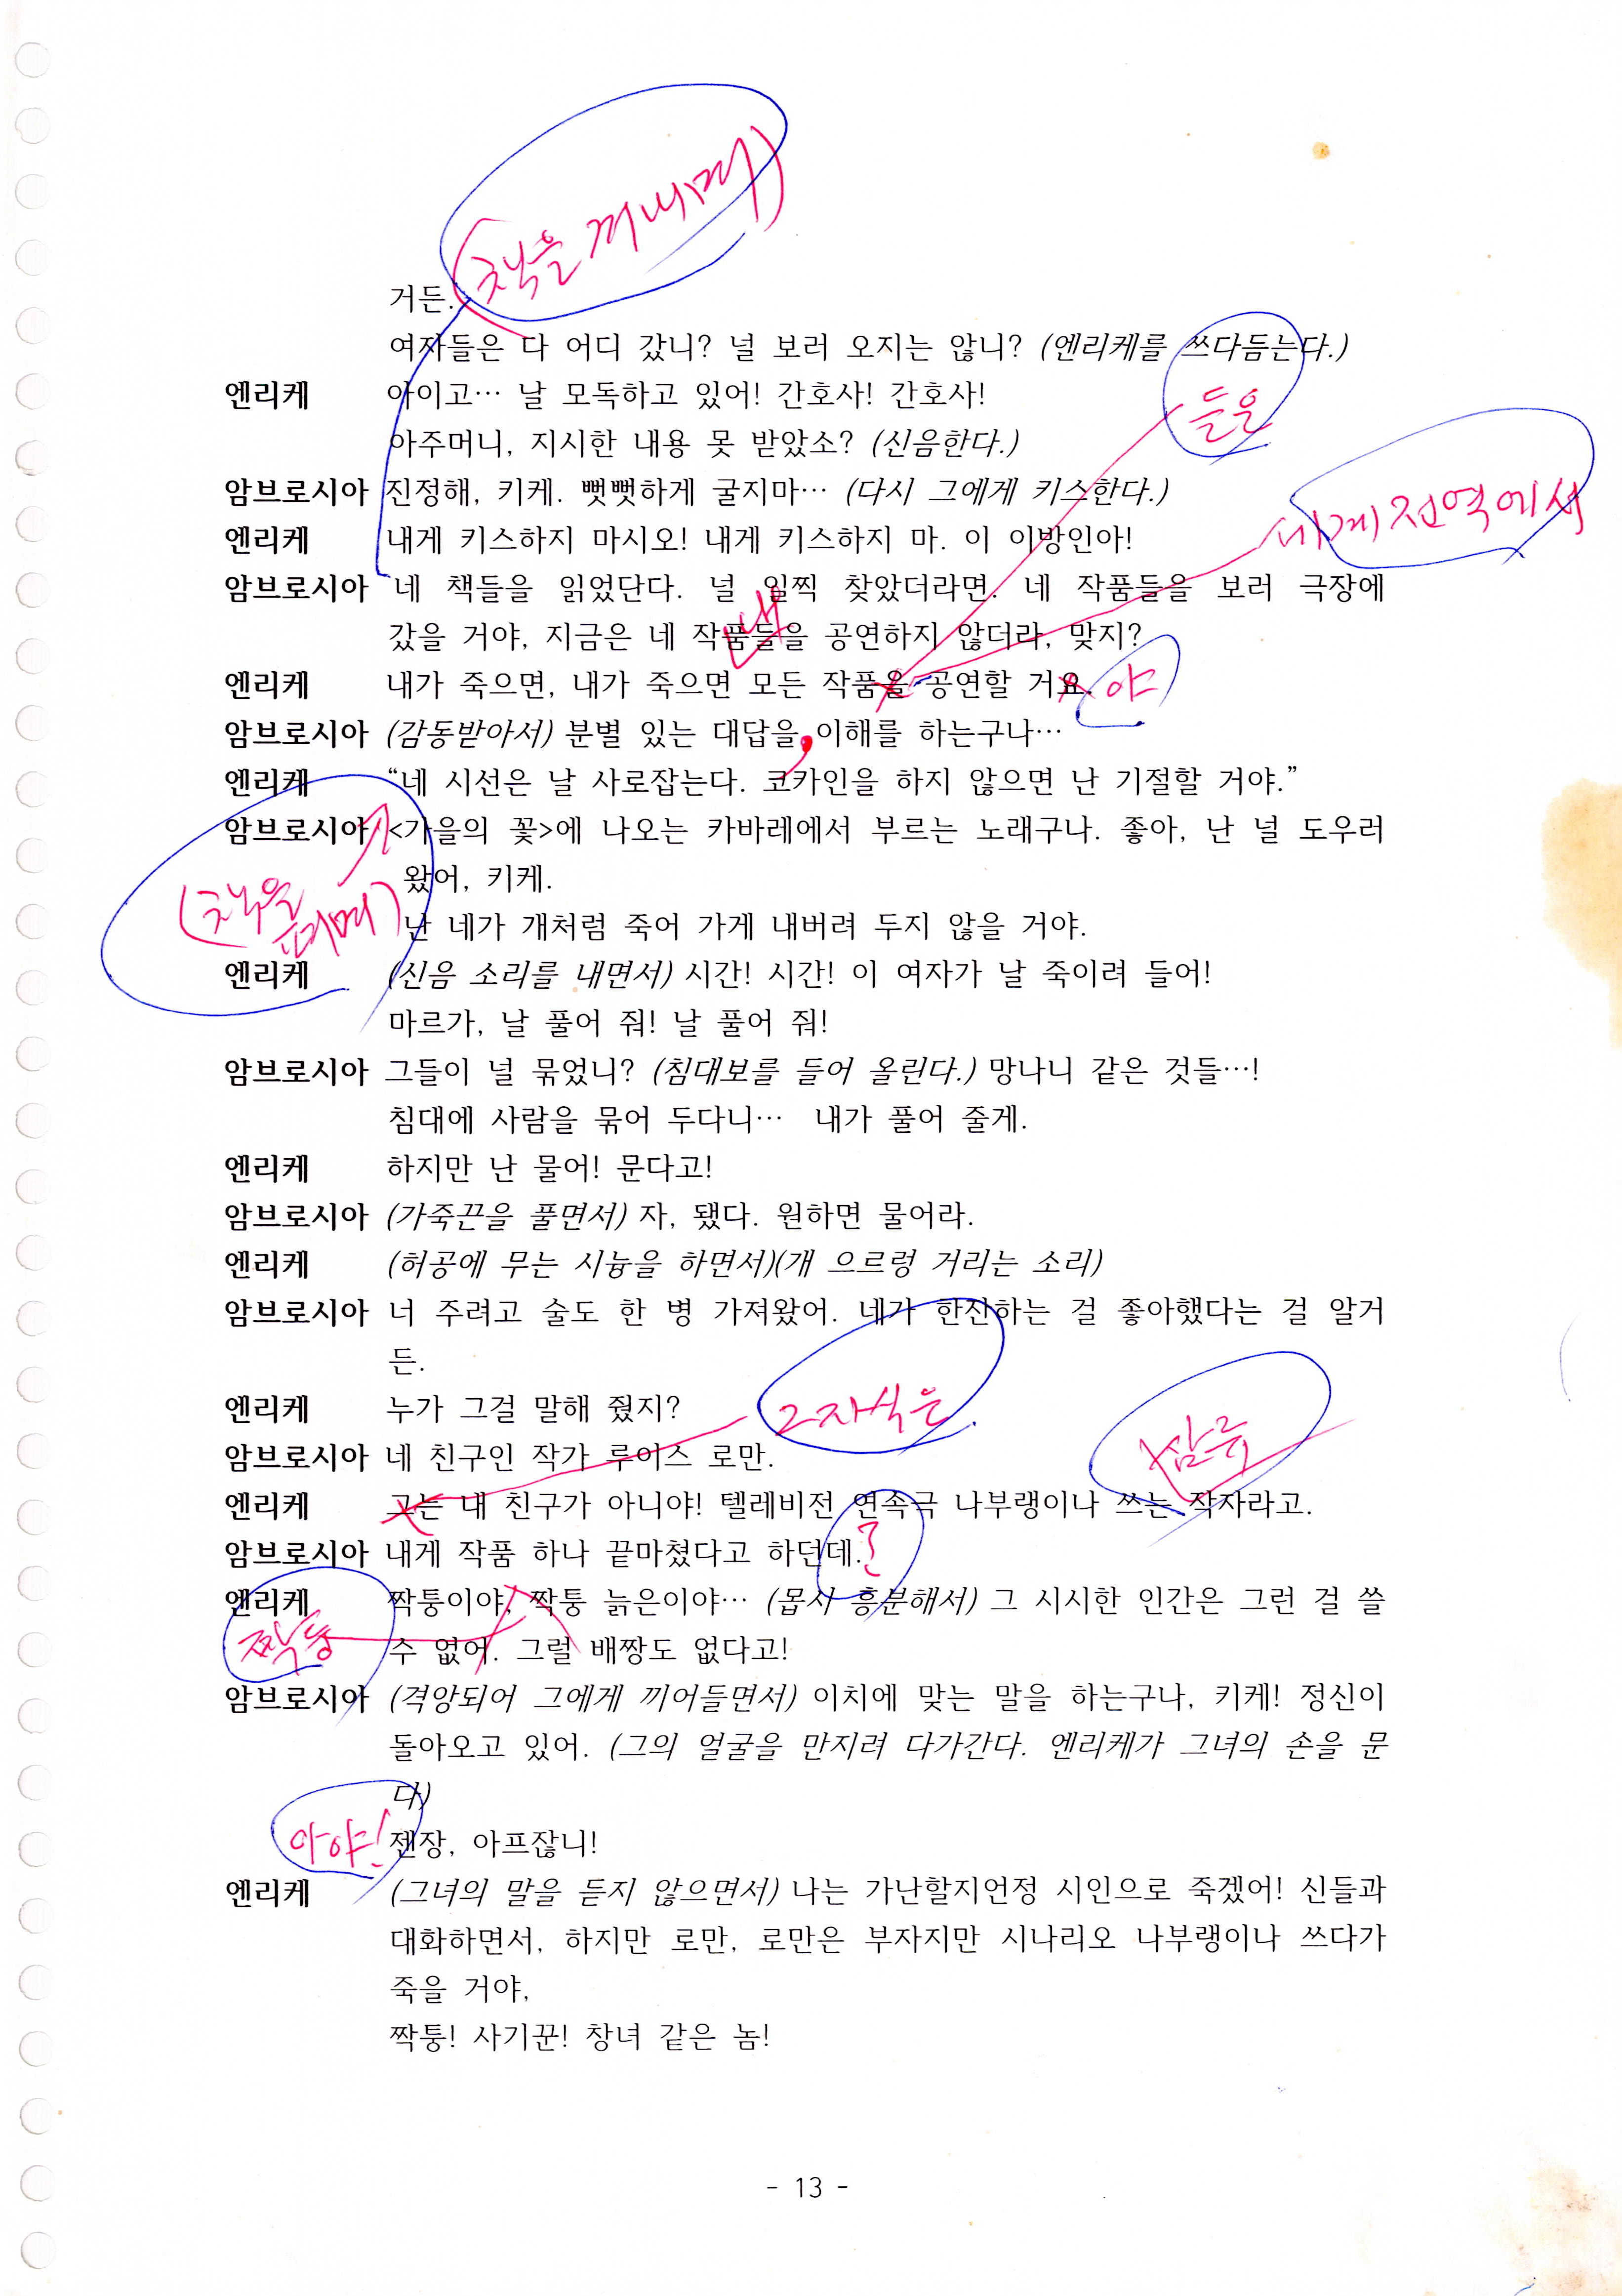 (책을 꺼내며)
거든.
여자들은 다 어디 갔니? 널 보러 오지는 않니? (엔리케를 쓰다듬는다.)
엔리케 아이고… 날 모독하고 있어! 간호사! 간호사!
들을
아주머니, 지시한 내용 못 받았소? (신음한다.)
암브로시아 진정해, 키케. 뻣뻣하게 굴지마… (다시 그에게 키스한다.)
세계 전역에서
엔리케 내게 키스하지 마시오! 내게 키스하지 마. 이 이방인아!
암브로시아 네 책들을 읽었단다. 널 일찍 찾았더라면. 네 작품들을 보러 극장에
갔을 거야, 지금은 네 작품들을 공연하지 않더라, 맞지?
엔리케 내가 죽으면, 내가 죽으면 모든 작품을 공연할 거요. 야
암브로시아 (감동받아서) 분별 있는 대답을, 이해를 하는구나…
엔리케 “네 시선은 날 사로잡는다. 코카인을 하지 않으면 난 기절할 거야.”
암브로시아 <가을의 꽃>에 나오는 카바레에서 부르는 노래구나. 좋아, 난 널 도우러
왔어, 키케.
(책을 펴며)
난 네가 개처럼 죽어 가게 내버려 두지 않을 거야.
엔리케 (신음 소리를 내면서) 시간! 시간! 이 여자가 날 죽이려 들어!
마르가, 날 풀어 줘! 날 풀어 줘!
암브로시아 그들이 널 묶었니? (침대보를 들어 올린다.) 망나니 같은 것들…!
침대에 사람을 묶어 두다니… 내가 풀어 줄게.
엔리케 하지만 난 물어! 문다고!
암브로시아 (가죽끈을 풀면서) 자, 됐다. 원하면 물어라.
엔리케 (허공에 무는 시늉을 하면서)(개 으르렁 거리는 소리)
암브로시아 너 주려고 술도 한 병 가져왔어. 네가 한잔하는 걸 좋아했다는 걸 알거
든.
엔리케 누가 그걸 말해 줬지?
그 자식은
암브로시아 네 친구인 작가 루이스 로만.
삼류
엔리케 그는 내 친구가 아니야! 텔레비전 연속극 나부랭이나 쓰는 작자라고.
암브로시아 내게 작품 하나 끝마쳤다고 하던데.?
엔리케 짝퉁이야, 짝퉁 늙은이야… (몹시 흥분해서) 그 시시한 인간은 그런 걸 쓸
짝퉁
수 없어. 그럴 배짱도 없다고!
암브로시아 (격앙되어 그에게 끼어들면서) 이치에 맞는 말을 하는구나, 키케! 정신이
돌아오고 있어. (그의 얼굴을 만지려 다가간다. 엔리케가 그녀의 손을 문
다)
아야! 젠장, 아프잖니!
엔리케 (그녀의 말을 듣지 않으면서) 나는 가난할지언정 시인으로 죽겠어! 신들과
대화하면서, 하지만 로만, 로만은 부자지만 시나리오 나부랭이나 쓰다가
죽을 거야,
짝퉁! 사기꾼! 창녀 같은 놈!
- 13 -